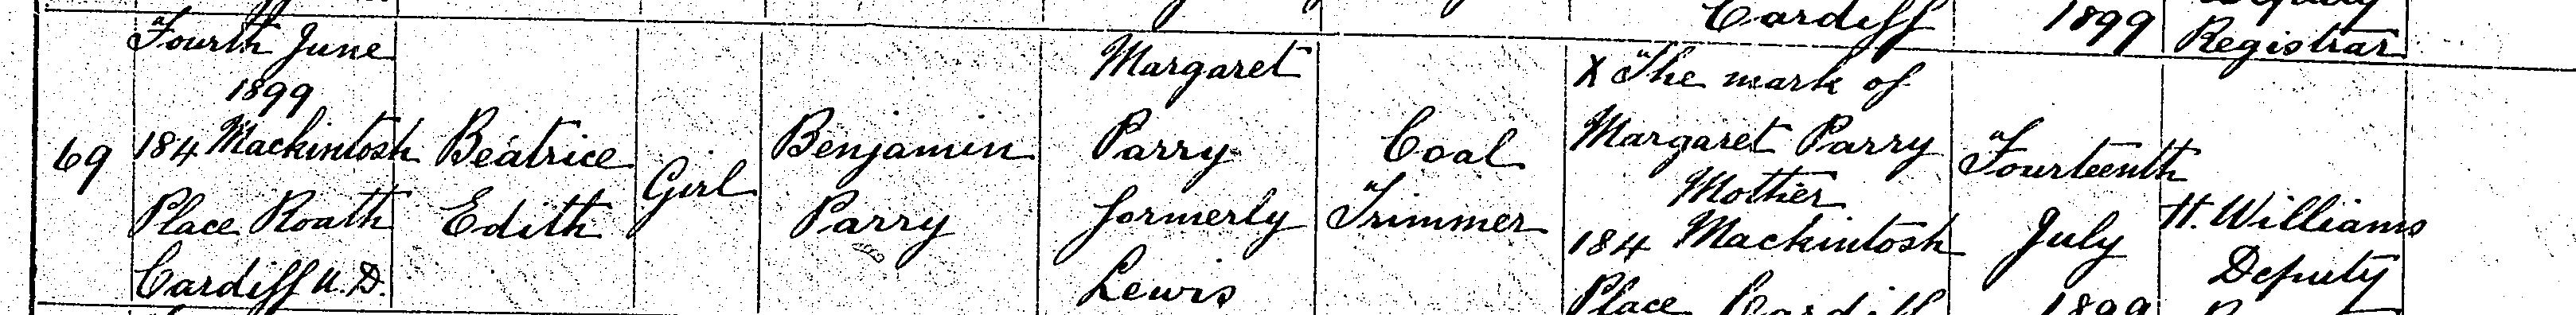 Cardiff
1899
Deputy
Registrar
69
Fourth June
1899
184 Mackintosh
Place Roath
Cardiff U.D.
Beatrice
Edith
Girl
Benjamin
Parry
Margaret
Parry
formerly
Lewis
Coal
Trimmer
X The mark of
Margaret Parry
Mother
184 Mackintosh
Place Cardiff
Fourteenth
July
1899
H. Williams
Deputy